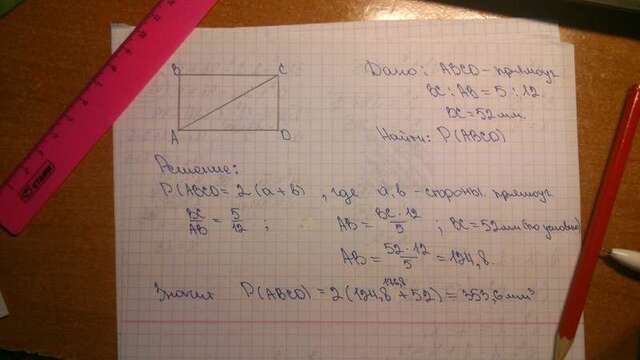 B C
A D
Дано: ABCD - прямоуг
BC : AB = 5 : 12
BC = 52 мм.
Найти: P(ABCD)
Решение:
P(ABCD = 2(a+b), где a, b - стороны прямоуг
BC/AB = 5/12 ; AB = BC·12/5 ; BC = 52 мм (по условию)
AB = 52·12/5 = 124,8.
Значит P(ABCD) = 2(124,8 + 52) = 353,6 мм³